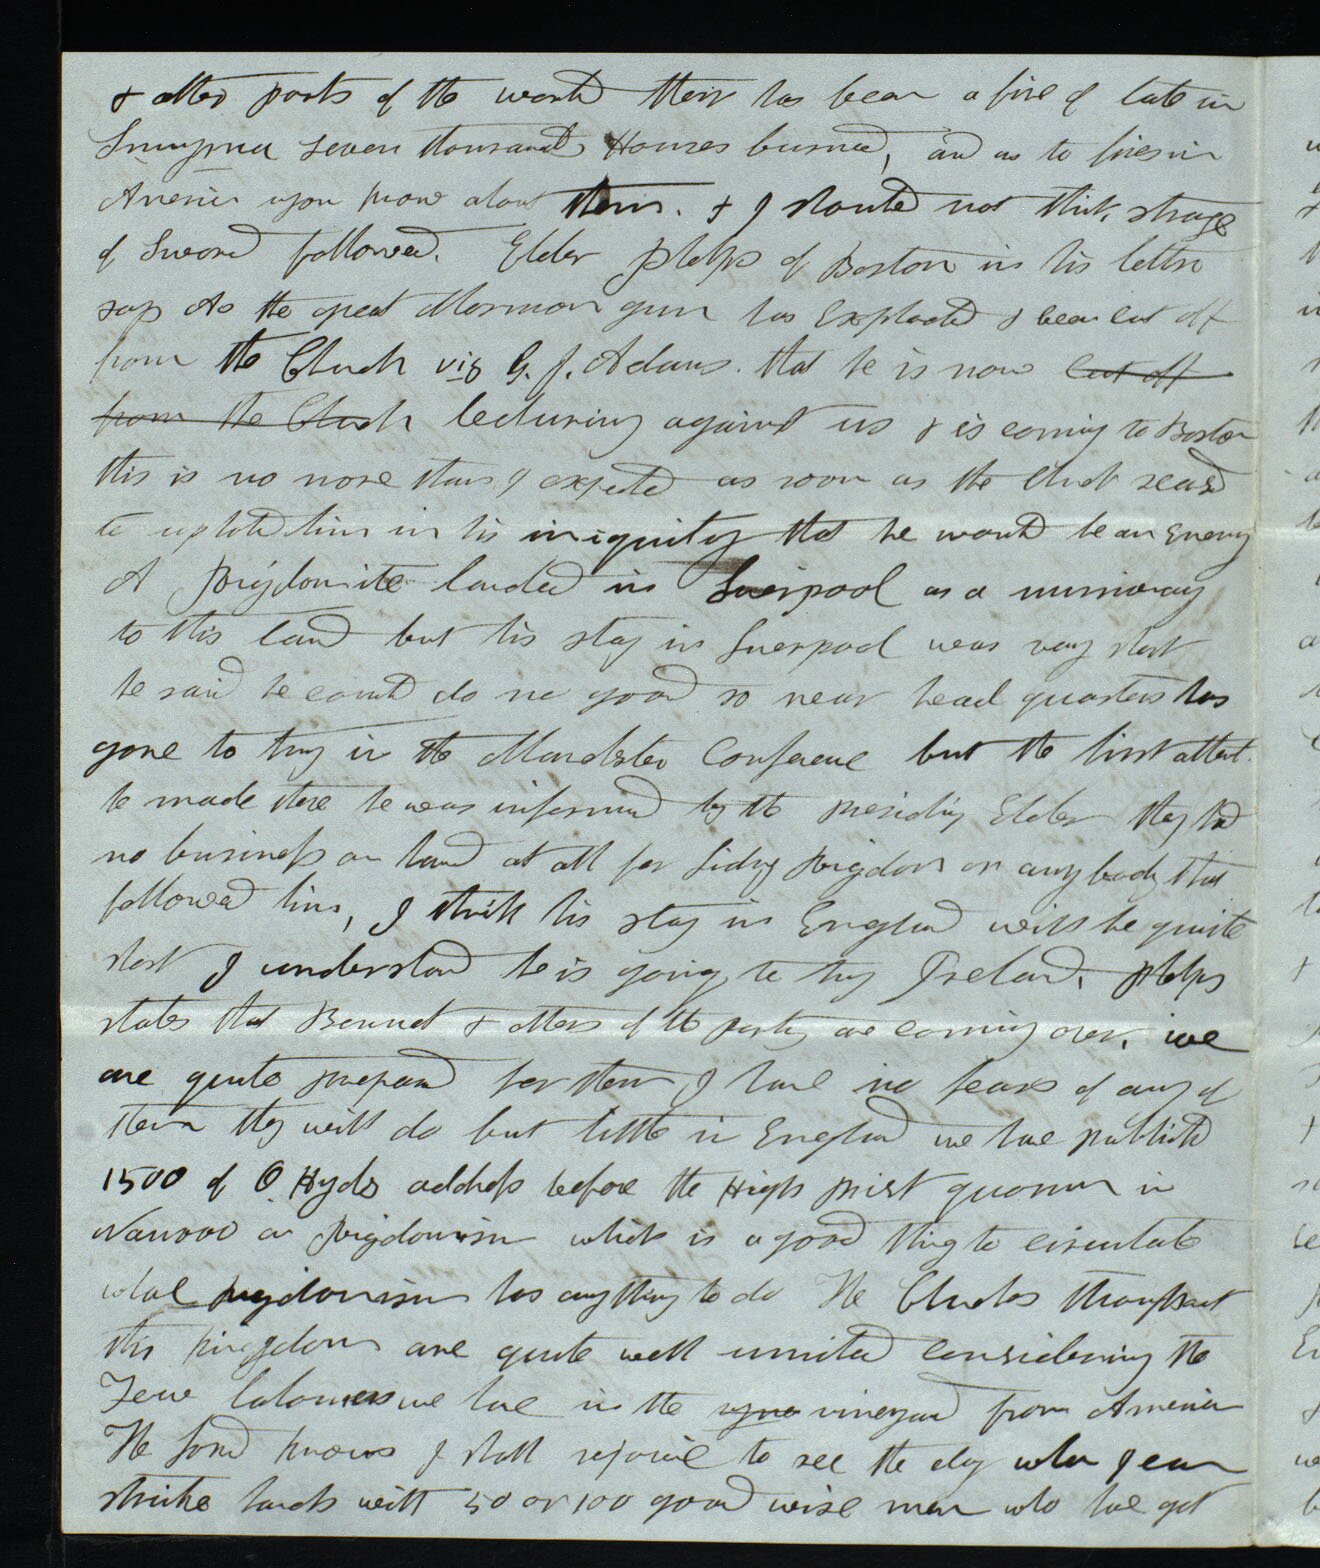 & other parts of the world their has been a fire of late in
Smyrna seven thousand Houses burned, and as to fires in
America you know about them. & I should not think strange
if Sword followed. Elder Phelps of Boston in his letter
says As the great Mormon gun has Exploded & been cut off
from the Church viz G. J. Adams. that he is now cut off
from the Church lecturing against us & is coming to Boston
this is no more than I expected as soon as the Church ceased
to uphold him in his iniquity that he would be an Enemy
A Rigdonite landed in Liverpool as a missionary
to this land but his stay in Liverpool was vary short
he said he could do no good so near head quarters has
gone to try in the Manchster Conference but the first attempt
he made there he was informed by the presiding Elder they had
no business on hand at all for Sidney Rigdon or any body that
followed him, I think his stay in England will be quite
short I understand he is going to try Ireland. Phelps
states that Bennet & others of the party are coming over, we
are quite prepared for them I have no fears of any of
them they will do but little in England we have published
1500 of O Hydes address before the High priest quorum in
Nauvoo on Rigdonism which is a good thing to circulate
whare Rigdonism has any thing to do The Churches throughout
this kingdom are quite well united considering the
Few labourers we have in the vineyard from America
The Lord knows I shall rejoice to see the day when I can
strike hands with 50 or 100 good wise men who have got